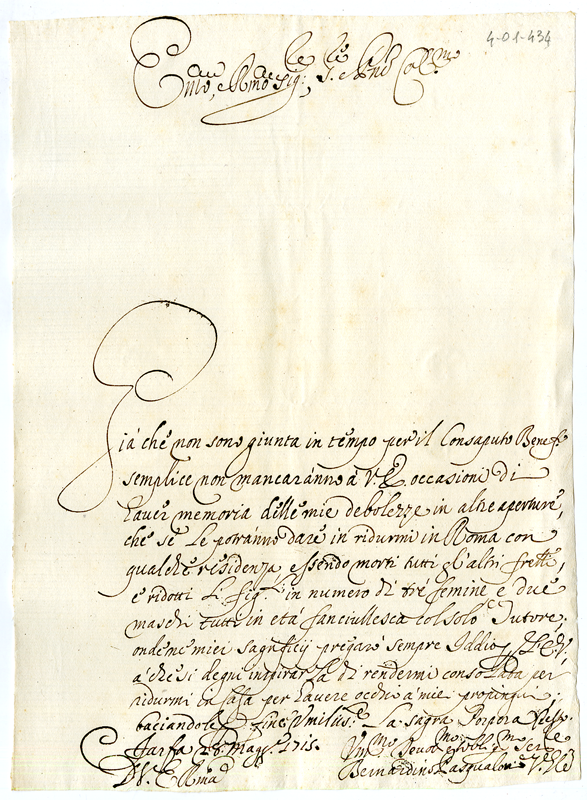 4-01-434
Em.mo, e R.mo Sig.re, Sig.re e P.ne Col.mo
Già che non sono giunta in tempo per il Consaputo Benef.
semplice non mancaranno à V.E. occasioni di
haver memoria delle mie debolezze in altre aperture,
che se le potranno dare in ridurmi in Roma con
qualche residenza, essendo morti tutti gl'altri fretti,
e ridotti li fig. in numero di tré femine e due
maschi tutti in età fanciullesca col solo Tutore;
onde ne miei sagrificij pregarò sempre Iddio
à che si degni inspirarla di rendermi consolata per
ridurmi in Casa per havere occhio a miei
baciandole fine Umiliss. La sagra Porpora
Farfa 28 Magg. 1715.
D.V. E. R.ma
Um.mo Devot. Obbl.mo Ser.re
Bernardino Pasqualoni